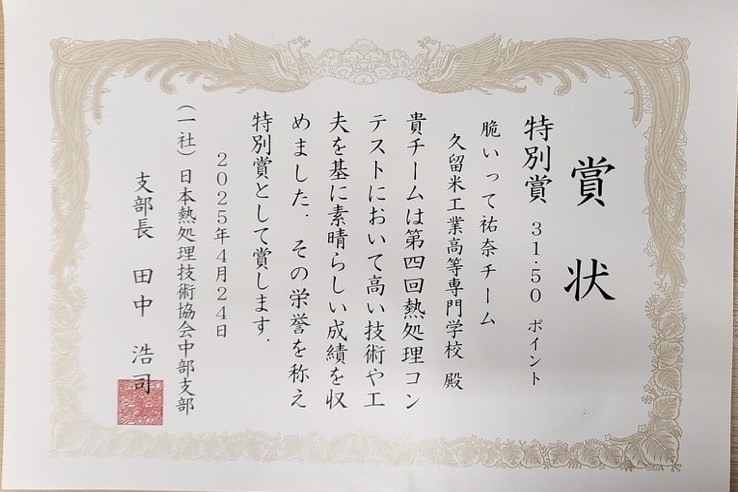 賞状
特別賞 31.50 ポイント
脆いって祐奈チーム
久留米工業高等専門学校 殿
貴チームは第四回熱処理コン
テストにおいて高い技術や工
夫を基に素晴らしい成績を収
めました. その栄誉を称え
特別賞として賞します.
2025年4月24日
(一社)日本熱処理技術協会中部支部
支部長 田中 浩司